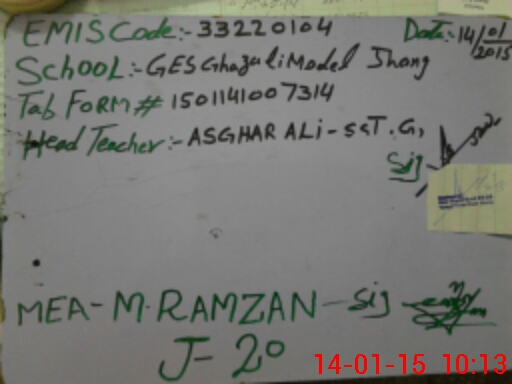 EMIS Code:- 33220104 Date:- 14/01/2015
School:- GES Ghazali Model Jhang
Tab Form # 1501141007314
Head Teacher:- ASGHAR ALi - SST. G,
Sig
MEA - M. RAMZAN - Sig
J- 20
14-01-15 10:13